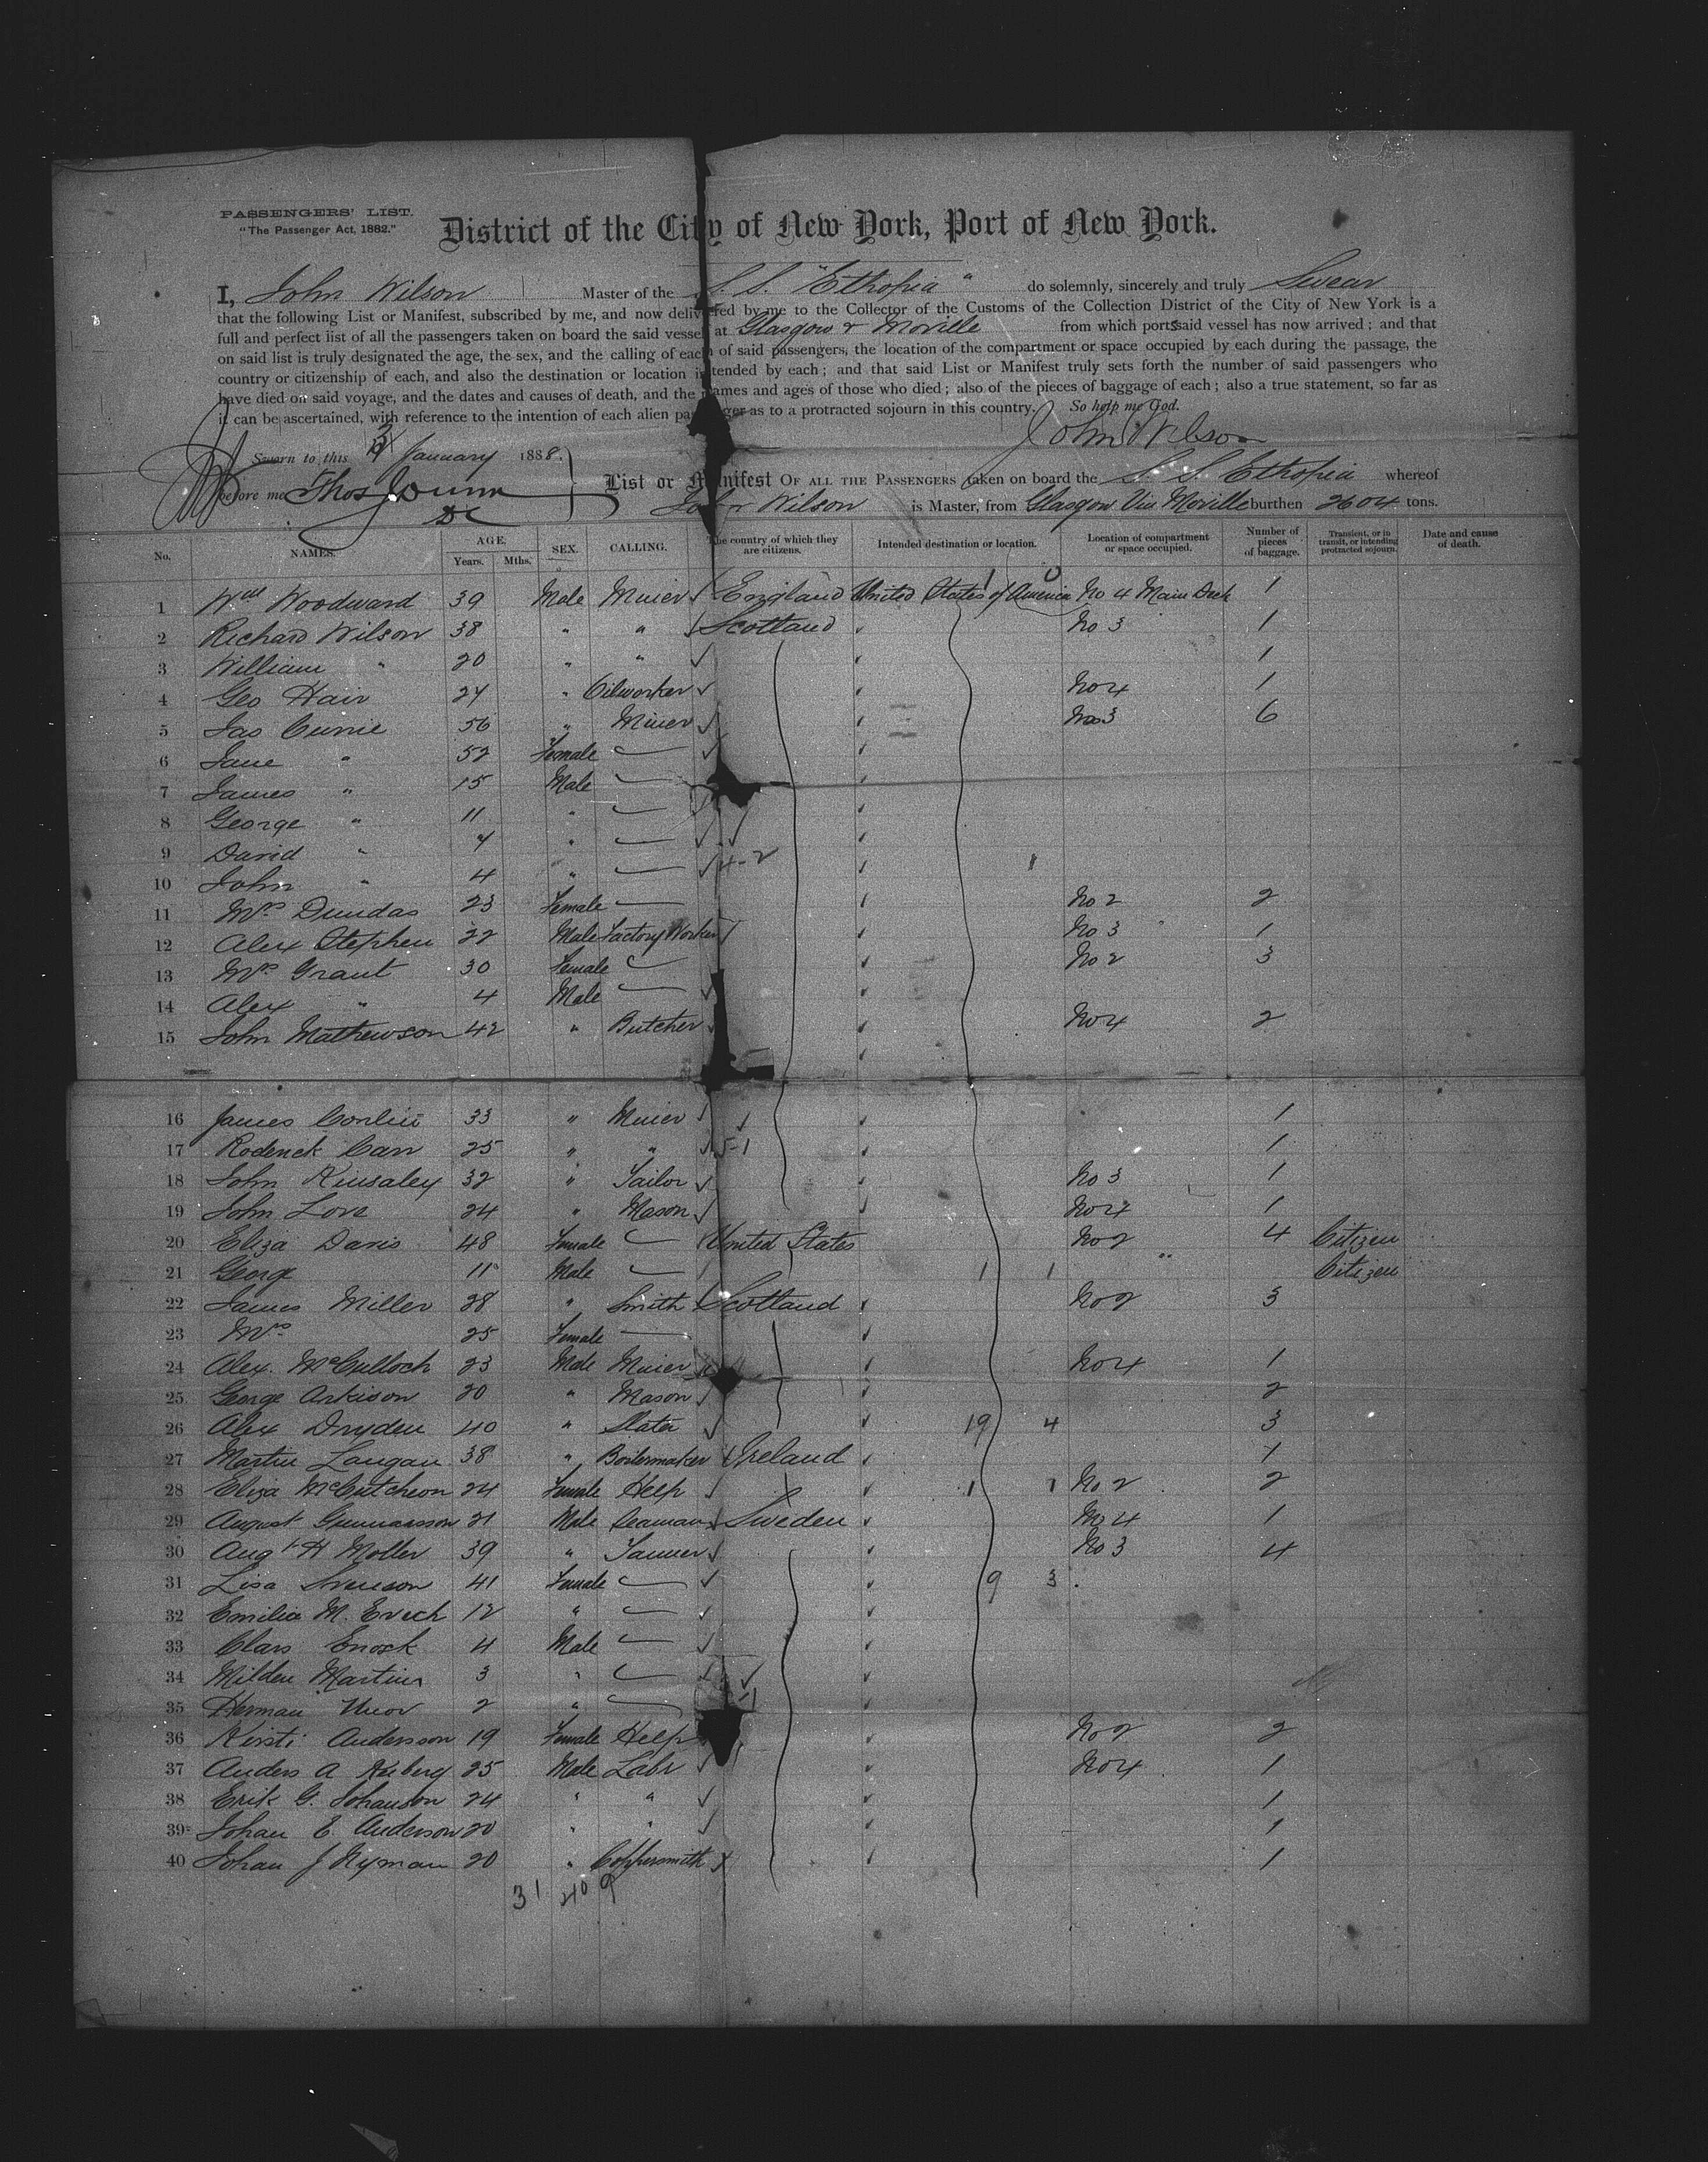 PASSENGERS' LIST.
"The Passenger Act, 1882."
District of the City of New York, Port of New York.
I, John Wilson Master of the S. S. "Ethopia" do solemnly, sincerely and truly Swear
that the following List or Manifest, subscribed by me, and now delivered by me to the Collector of the Customs of the Collection District of the City of New York is a
full and perfect list of all the passengers taken on board the said vessel at Glasgow & Moville from which ports said vessel has now arrived; and that
on said list is truly designated the age, the sex, and the calling of each of said passengers, the location of the compartment or space occupied by each during the passage, the
country or citizenship of each, and also the destination or location intended by each; and that said List or Manifest truly sets forth the number of said passengers who
have died on said voyage, and the dates and causes of death, and the names and ages of those who died; also of the pieces of baggage of each; also a true statement, so far as
it can be ascertained, with reference to the intention of each alien passenger as to a protracted sojourn in this country. So help me God.
John Wilson
Sworn to this January 1888.
before me Thos
List or Manifest OF ALL THE PASSENGERS taken on board the S. S. Ethopia whereof
John Wilson is Master, from Glasgow Via Moville burthen 2604 tons.
No. NAMES. AGE. Years. Mths. SEX. CALLING. The country of which they are citizens. Intended destination or location. Location of compartment or space occupied. Number of pieces of baggage. Transient, or in transit, or intending protracted sojourn. Date and cause of death.
1 Wm Woodward 39 Male Miner England United States of America No 4 Main Deck 1
2 Richard Wilson 38 " " Scotland No 3 1
3 William " 20 " " 1
4 Geo Hair 24 " Oilworker No 4 1
5 Jas Currie 56 " Miner No 3 6
6 Jane " 52 Female
7 James " 15 Male
8 George " 11 "
9 David " "
10 John " 4 "
11 Mrs Dundas 23 Female No 2 2
12 Alex Stephen 22 Male Factory Worker No 3 1
13 Mrs Grant 30 Female No 2 3
14 Alex " 4 Male
15 John Mathewson 42 " Butcher No 4 2
16 James Conlin 33 " Miner 1
17 Roderick Carr 25 " " 1
18 John Kinsaley 32 " Tailor No 3 1
19 John Love 24 " Mason No 4 1
20 Eliza Davis 48 Female United States No 2 4 Citizen
21 George 11 Male 1 1 Citizen
22 James Miller 28 " Smith Scotland No 2 3
23 Mrs 25 Female
24 Alex. McCulloch 23 Male Miner No 4 1
25 George Arkison 20 " Mason 2
26 Alex Dryden 40 " Slater 19 4 3
27 Martin Langan 38 " Boilermaker Ireland 1
28 Eliza McCutcheon 24 Female Help 1 1 No 2 2
29 August Gunnarsson 21 Male Seaman Sweden No 4 1
30 Augt H Moller 39 " Tanner No 3 4
31 Lisa Svenson 41 Female 9 3
32 Emilia M. 12 "
33 Clars Enock 4 Male
34 Milden Martin 3 "
35 Herman 2 "
36 Kirsti Andersson 19 Female Help No 2 2
37 Anders A 25 Male Labr No 4 1
38 Erik G. Johanson 24 " " 1
39 Johan E. Anderson 20 " " 1
40 Johan J Nyman 20 " Coppersmith 1
31 40 9